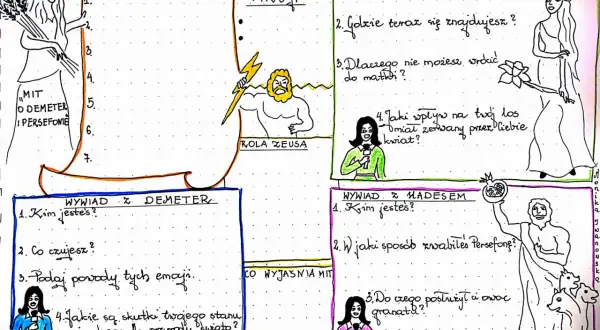 1.
4.
5.
6.
7.
"MIT
O DEMETER
I PERSEFONIE
ROLA ZEUSA
2. Gdzie teraz się znajdujesz?
3. Dlaczego nie możesz wrócić
do matki?
4. Jaki wpływ na twój los
miał zerwany przez Ciebie
kwiat?
WYWIAD Z DEMETER
1. Kim jesteś?
2. Co czujesz?
3. Podaj powody tych emocji.
4. Jakie są skutki twojego stanu
CO WYJAŚNIA MIT
WYWIAD Z HADESEM
1. Kim jesteś?
2. W jaki sposób zwabiłeś Persefonę?
3. Do czego posłużył ci owoc
granatu?